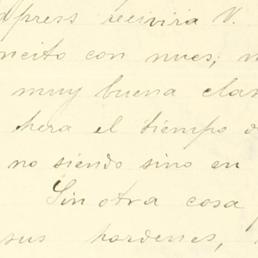 dpress recivira V.
ncito con nues;
muy buena clas
hera el tiempo d
no siendo sino en
Sin otra cosa
sus hordenes,